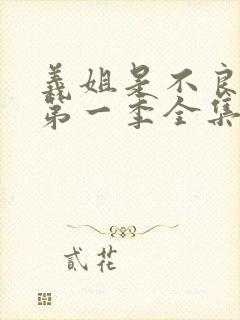 義姐是不良
第一季全集
貳花